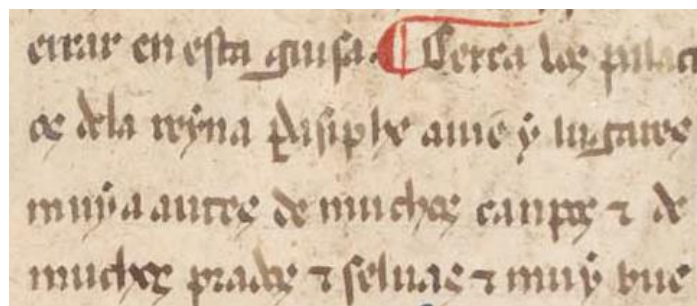 errar en esta guisa. ¶ Cerca los palaci
os dela reyna Pasiphe auie y lugares
muy a autes de muchos canpos ⁊ de
muchos prados ⁊ seluas ⁊ muy bue